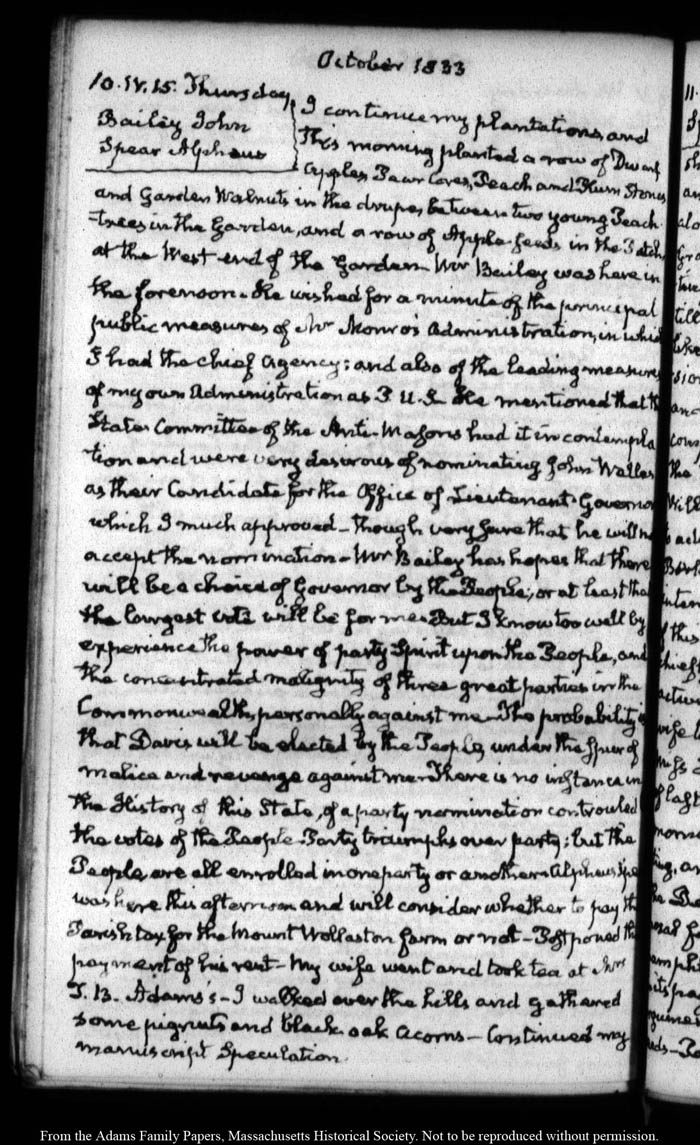 October 1833
10. IV. 15. Thursday
Bailey John
Spear Alpheus
I continue my plantations, and
this morning planted a row of Dwarf
Apples, Pear Cores, Peach and Plum Stones
and Garden Walnuts in the drupe, between two young Peach-
trees in the Garden, and a row of Apple-seeds in the Patch
at the West end of the Garden. Mr Bailey was here in
the forenoon. He wished for a minute of the principal
public measures of Mr Monro's Administration, in which
I had the chief Agency; and also of the leading measures
of my own Administration as P. U. S. He mentioned that the
State Committee of the Anti-Masons had it in contempla
tion and were very desirous of nominating John
as their Candidate for the Office of Lieutenant-Governor
which I much approved—though very sure that he will
accept the nomination—Mr Bailey has hopes that there
will be a choice of Governor by the People; or at least that
the largest vote will be for me. But I know too well by
experience the power of party Spirit upon the People, and
the concentrated malignity of three great parties in the
Commonwealth, personally against me. The probability is
that Davis will be elected by the People, under the spur of
malice and revenge against me. There is no instance in
the History of this State, of a party nomination controuled
the votes of the People. Party triumphs over party; but the
People are all enrolled in one party or another. Alpheus
was here this afternoon and will consider whether to pay the
Parish tax for the Mount Wollaston farm or not—Postponed the
payment of his rent—My wife went and took tea at Mrs
T. B. Adams's—I walked over the hills and gathered
some pignuts and black-oak acorns—Continued my
manuscript Speculation.
From the Adams Family Papers, Massachusetts Historical Society. Not to be reproduced without permission.